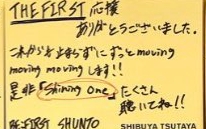 THE FIRST 応援
ありがとうございました。
これからも止まらずにずっとmoving
moving movingします!!
是非「Shining One」たくさん
聴いてね!!
BE:FIRST SHUNTO
SHIBUYA TSUTAYA